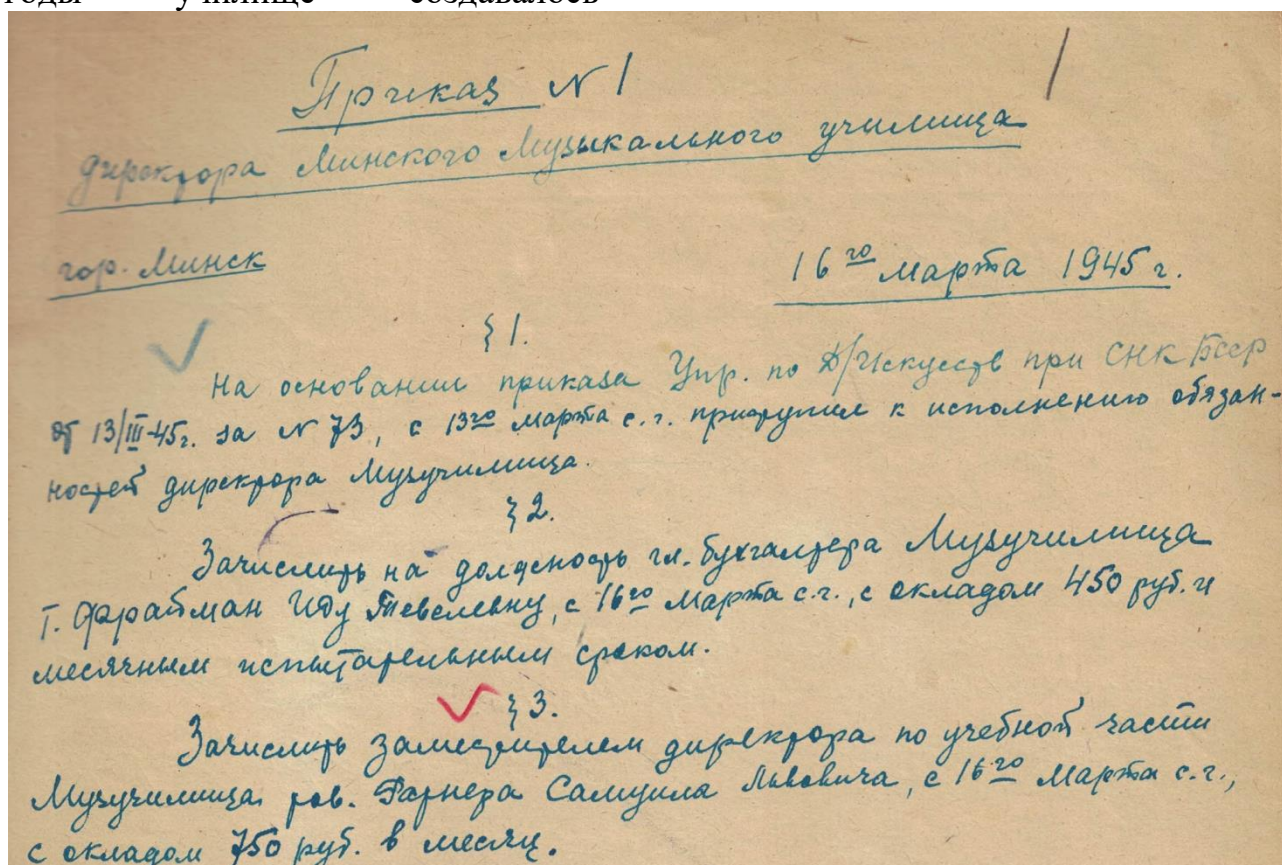 годы училище создавалось
Приказ № 1
директора Минского Музыкального училища
гор. Минск 16го марта 1945 г.
§ 1.
На основании приказа Упр. по Д/Искусств при СНК БССР
от 13/III-45г. за № 73, с 13го марта с.г. приступил к исполнению обязан-
ностей директора Музучилища.
§ 2.
Зачислить на должность гл. бухгалтера Музучилища
т. Фрайман Иду Тевелевну, с 16го Марта с.г., с окладом 450 руб. и
месячным испытательным сроком.
§ 3.
Зачислить заместителем директора по учебной части
Музучилища тов. Самуила Львовича, с 16го Марта с.г.,
с окладом 750 руб. в месяц.